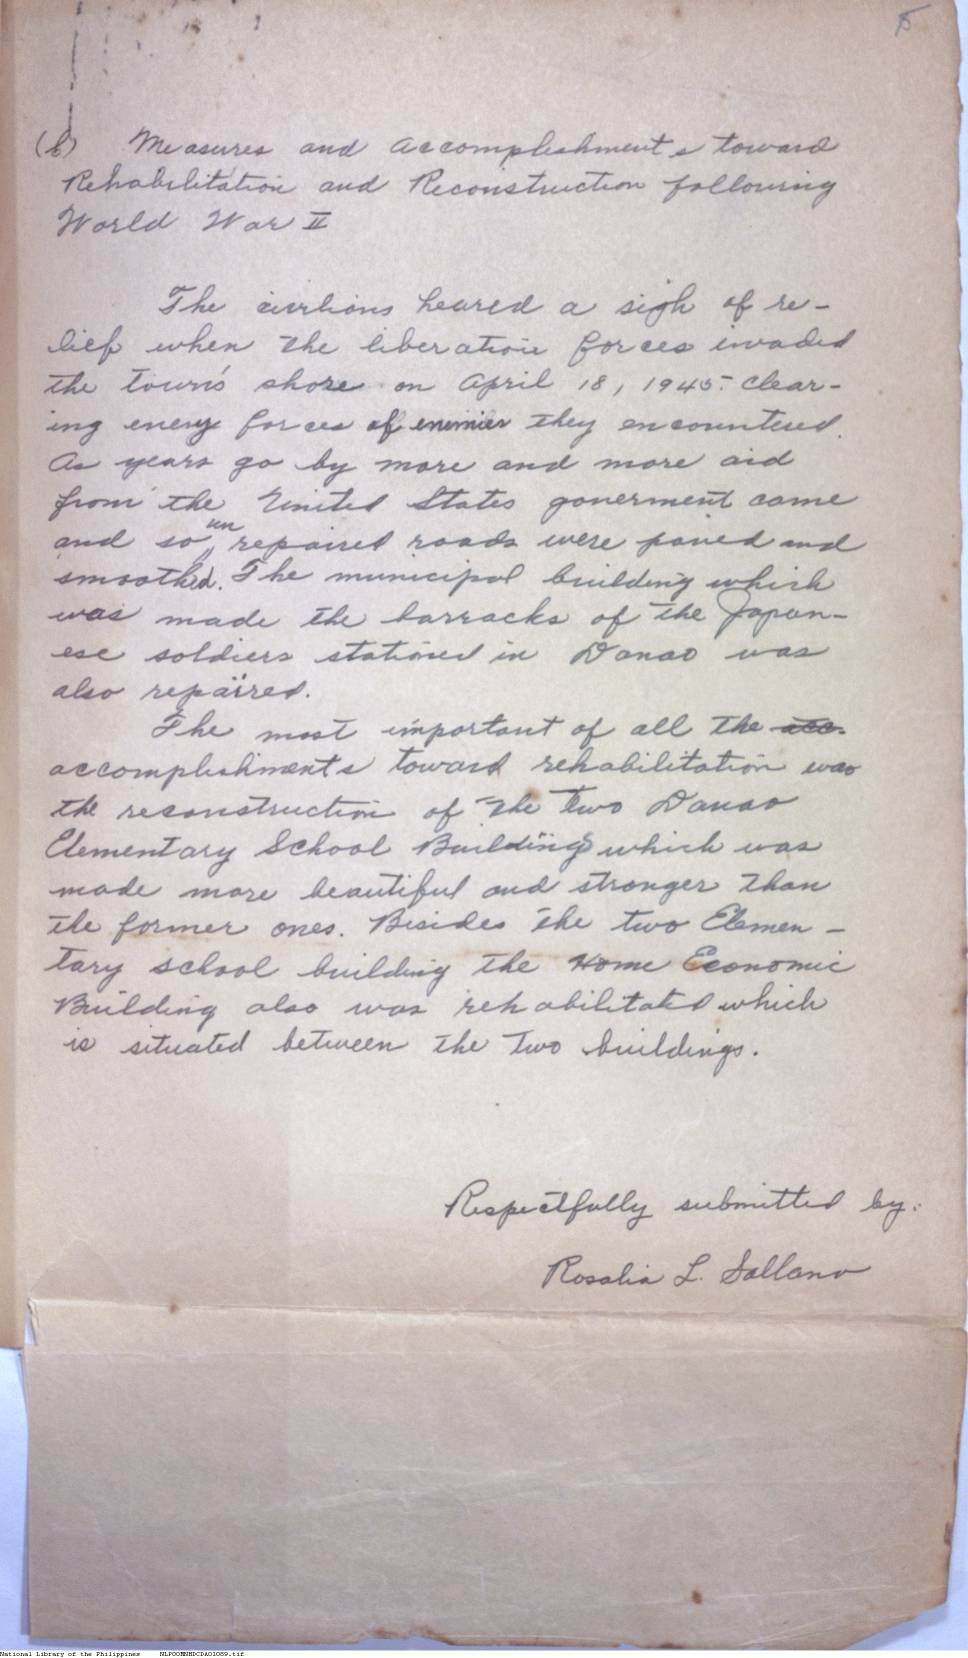 5
(b) Measures and accomplishments toward
Rehabilitation and Reconstruction following
World War II
The civilians heared a sigh of re-
lief when the liberation forces invaded
the town's shore on April 18, 1945. Clear-
ing enemy forces of enimies they encountered.
As years go by more and more aid
from the United States goverment came
and so un repaired roads were paved and
smoothed. The municipal building which
was made the barracks of the Japan-
ese soldiers stationed in Danao was
also repaired.
The most important of all the acc.
accomplishments toward rehabilitation was
the reconstruction of the two Danao
Elementary School Buildings which was
made more beautiful and stronger than
the former ones. Besides the two Elemen-
tary school building the Home Economic
Building also was rehabilitated which
is situated between the two buildings.
Respectfully submitted by:
Rosalia L. Sallano
National Library of the Philippines NLPOOMNHDCDA01089.tif